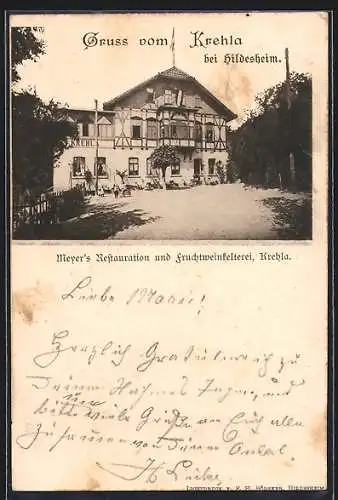 Gruss vom Krehla
bei Hildesheim.
Meyer's Restauration und Fruchtweinkelterei, Krehla.
Liebe Marie!
Herzlich Gratulieren zu
Deinem Namens Tage, und
viele Grüße an Euch alle
zusammen von Deinem Onkel
H Lücke